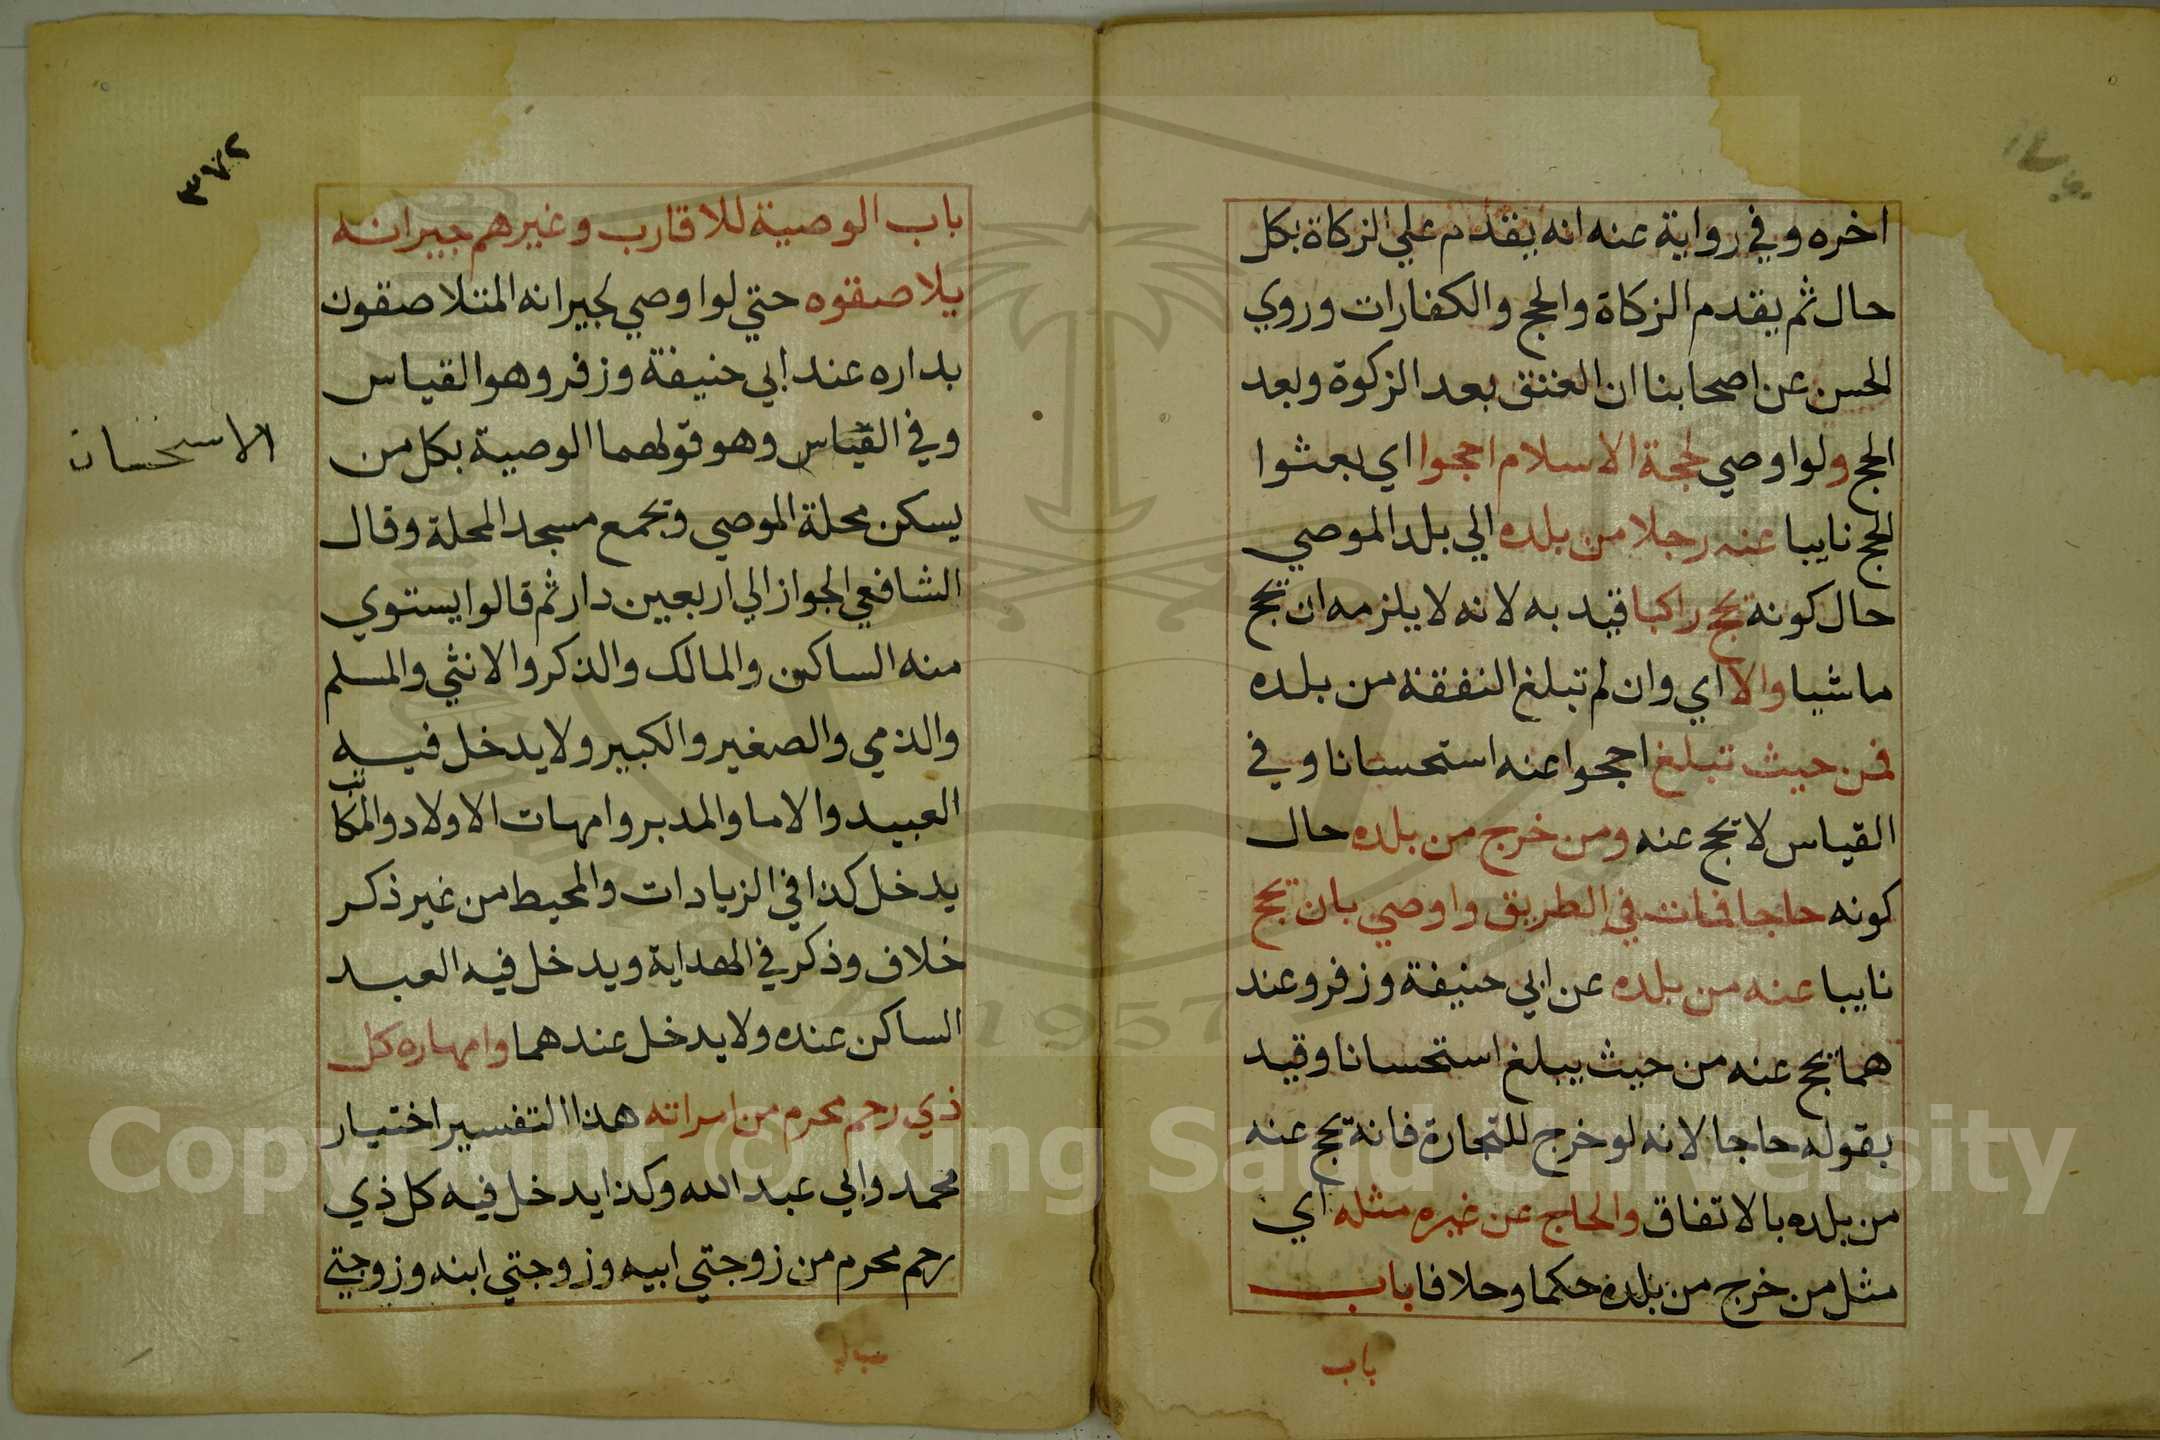 اخره وفي رواية عنه انه يقدم علي الزكاة بكل
حال ثم يقدم الزكاة والحج والكفارات وروي
الحسن عن اصحابنا ان العتق بعد الزكوة وبعد
الحج ولو اوصي لحجة الاسلام احجوا اي بعثوا
للحج نايبا عنه رجلا من بلده الي بلد الموصي
حال كونه يحج راكبا قيد به لانه لا يلزمه ان يحج
ماشيا والا اي وان لم تبلغ النفقة من بلده
فمن حيث تبلغ احجوا عنه استحسانا وفي
القياس لا يحج عنه ومن خرج من بلده حال
كونه حاجا فمات في الطريق واوصي بان يحج
نايبا عنه من بلده عن ابي حنيفة وزفر وعند
هما يحج عنه من حيث يبلغ استحسانا وقيد
بقوله حاجا لانه لو خرج للتجارة فانه يحج عنه
من بلده بالاتفاق والحاج عن غيره مثله اي
مثل من خرج من بلده حكما وخلافا باب
باب
٣٧٢
باب الوصية للاقارب وغيرهم جيرانه
يلاصقوه حتي لو اوصي لجيرانه المتلاصقون
بداره عند ابي حنيفة وزفر وهو القياس
وفي القياس وهو قولهما الوصية بكل من
الاستحسان
يسكن محلة الموصي ويجمع مسجد المحلة وقال
الشافعي الجواز الي اربعين دار ثم قالوا يستوي
منه الساكن والمالك والذكر والانثي والمسلم
والذمي والصغير والكبير ولا يدخل فيه
العبيد والاما والمدبر وامهات الاولاد والمكاتب
يدخل كذا في الزيادات والمحيط من غير ذكر
خلاف وذكر في الهداية ويدخل فيه العبد
الساكن عنده ولا يدخل عندهما وامهاره كل
ذي رحم محرم من امراته هذا التفسير اختيار
محمد وابي عبد الله وكذا يدخل فيه كل ذي
رحم محرم من زوجتي ابيه وزوجتي ابنه وزوجتي
Copyright © King Saud University
1957